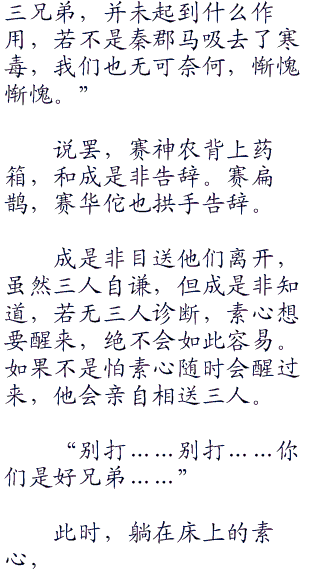 三兄弟，并未起到什么作
用，若不是秦郡马吸去了寒
毒，我们也无可奈何，惭愧
惭愧。”
说罢，赛神农背上药
箱，和成是非告辞。赛扁
鹊，赛华佗也拱手告辞。
成是非目送他们离开，
虽然三人自谦，但成是非知
道，若无三人诊断，素心想
要醒来，绝不会如此容易。
如果不是怕素心随时会醒过
来，他会亲自相送三人。
“别打……别打……你
们是好兄弟……”
此时，躺在床上的素
心，